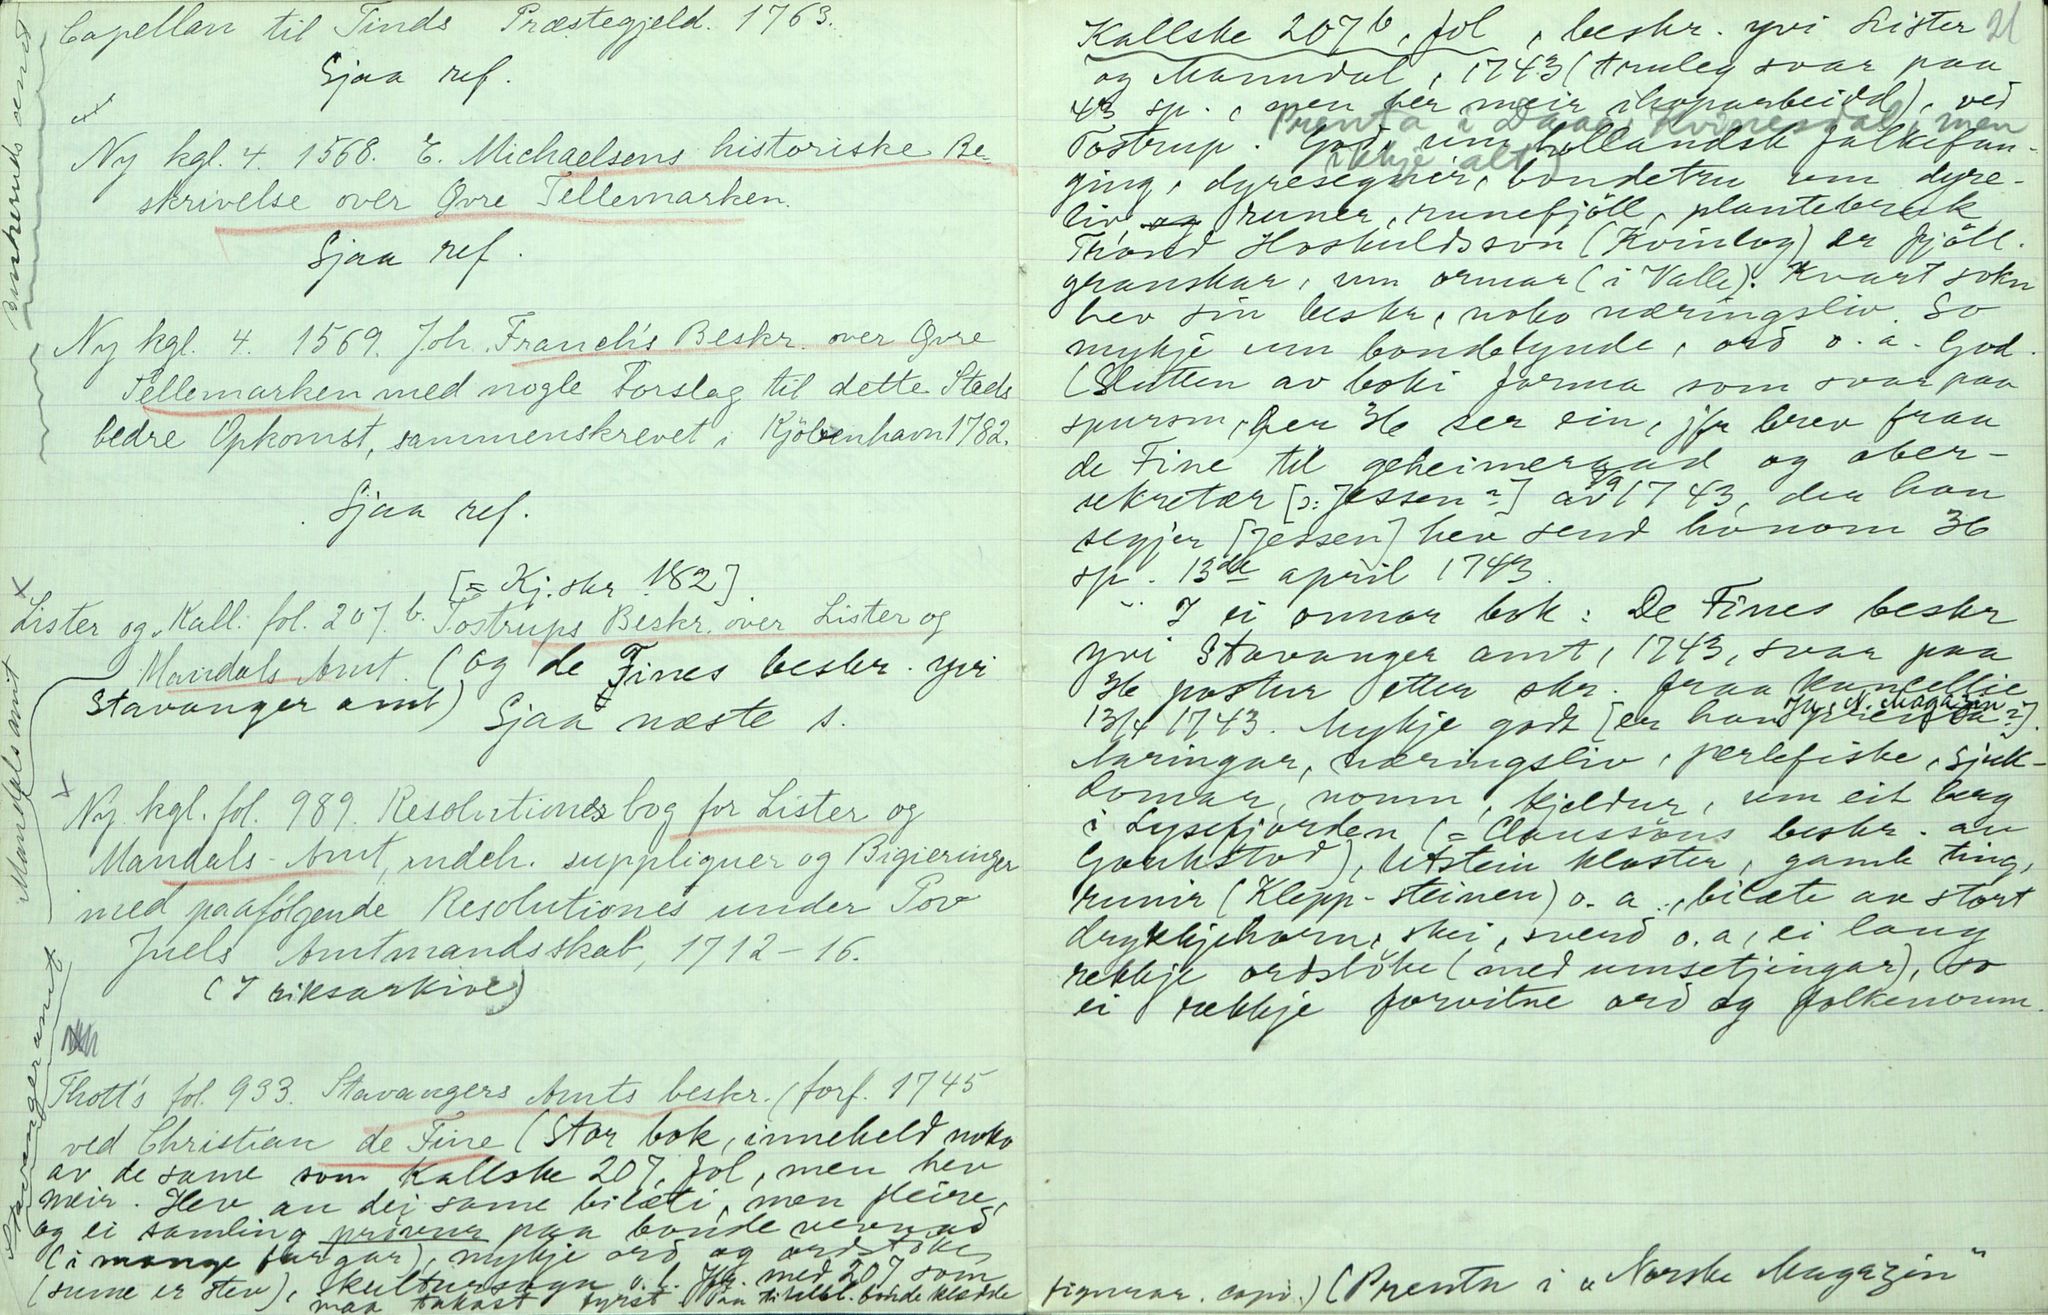 Capellan til Tinds Præstegjeld. 1763.
Sjaa ref.
Ny kgl. 4. 1568. E. Michaelsens historiske Be-
skrivelse over Øvre Tellemarken.
Sjaa ref.
Ny kgl. 4. 1569. Joh. Franch's Beskr. over Øvre
Tellemarken med nogle Forslag til dette Steds
bedre Opkomst, sammenskrevet i Kjöbenhavn 1782.
Sjaa ref.
[= Kj. skr. 182].
Lister og Kall. fol. 207. b. Tostrups Beskr. over Lister og
Mandals Amt. (og de Fines beskr. yvi
Stavanger amt) Sjaa næste s.
Ny kgl. fol. 989. Resolutionesbog for Lister og
Mandals-Amt, indeh. suppliquer og Bigieringer
med paafölgende Resolutiones under Pov
Juels Amtmandsskab, 1712-16.
(I riksarkive)
Thott's fol. 933. Stavangers Amts beskr. (forf. 1745
ved Christian de Fine (Stor bok, inneheld noko
av de same som Kallske 207, fol, men hev
meir. Hev au dei same bilæti, men fleire,
og ei samling prøvur paa bondevevnad
(i mange fargar), mykje ord og ordstöke
(sume er stev), kultursogn o.l. Jfr. med 207 som
maa takast fyrst
Mandals amt
Stavanger amt
Kallske 207 b, fol, beskr. yvi Lister 21
og Manndal, 1743 (truleg svar paa
43 sp., men her meir ihoparbeidd), ved
Prenta i Daae: Kvinesdal, men
Tostrup. God, um hollandsk falkefan-
ikkje alt)
ging, dyresegnir, bondetru um dyre-
liv, runer, runefjöll, plantebruk,
Trond Hoskuldsson (Kvinlog) er fjöll-
granskar, um ormar (i Valle). Kvart sokn
hev sin beskr, noko næringsliv. So
mykje um bondelynde, ord o.a. God.
(Slutten av boki forma som svar paa
spursm, her 36 ser ein, jfr brev fraa
de Fine til geheimeraad og ober-
sekretær [ɔ: Jessen?] av 1743, der han
segjer [Jessen] hev send honom 36
sp. 13de april 1743.
I ei onnor bok: De Fines beskr
yvi Stavanger amt, 1743, svar paa
36 postur etter skr. fraa kancellie
13/4 1743. Mykje godt [er han prenta?].
Jfr. N. Magasin
Næringar, næringsliv, perlefiske, sjuk-
domar, nomn, kjeldur, um eit berg
i Lysefjorden (= Claussöns beskr. av
Gaukstod), Utstein kloster, gamle ting,
runir (Klepp-steinen) o. a., bilæte av stort
drykkjehorn, skei, sverd o. a, ei lang
rekkje ordstöke (med umsetjingar), so
ei rekkje forvitne ord og folkenomn.
figurar. copi.) (Prenta i "Norske Magazin"